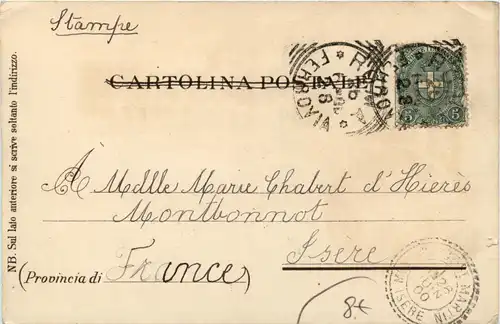 Stampe
CARTOLINA POSTALE
FERROVIA
ROMA
5
NB. Sul lato anteriore si scrive soltanto l'indirizzo.
À Mdlle Marie Chabert d'Hières
Montbonnot
Isère
(Provincia di France)
MARTIN
ISERE
8€